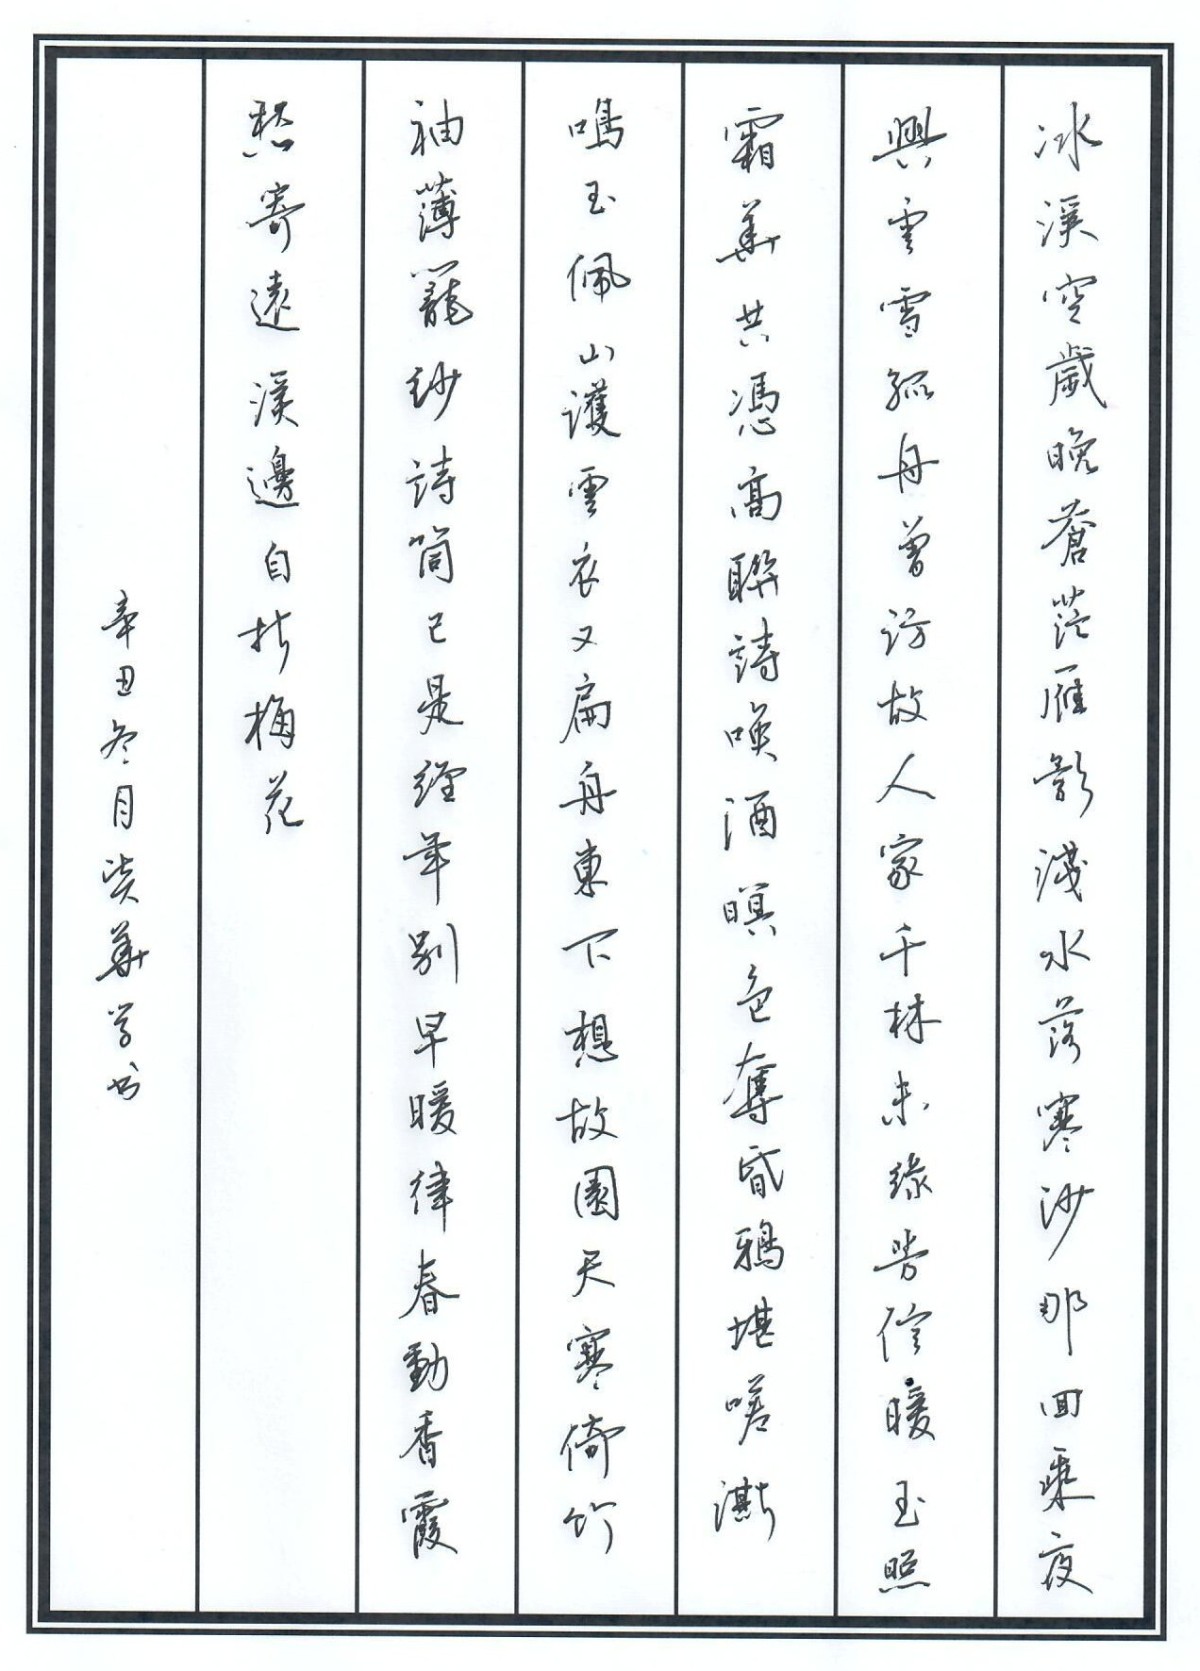 冰溪空歲晚蒼茫雁影淺水落寒沙那回乘夜
興雲雪孤舟曾訪故人家千林未綠芳信暖玉照
霜華共憑高聯詩喚酒暝色奪昏鴉堪嗟澌
鳴玉佩山護雲衣又扁舟東下想故園天寒倚竹
袖薄籠紗詩筒已是經年別早暖律春動香霞
愁寄遠溪邊自折梅花
辛丑冬月 華學書